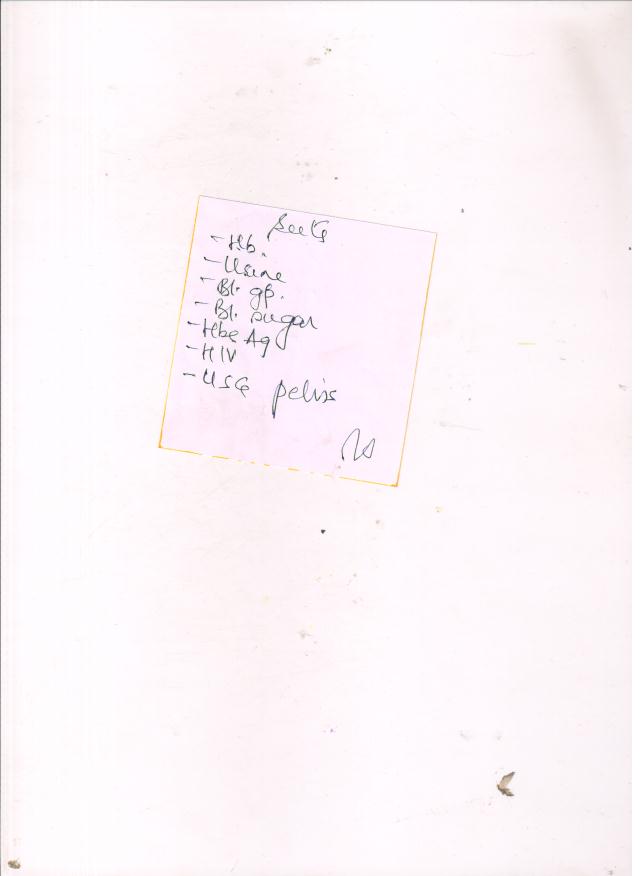 - Hb.
- Urine
- Bl. gp.
- Bl. sugar
- Hbs Ag
- HIV
- USG pelvis